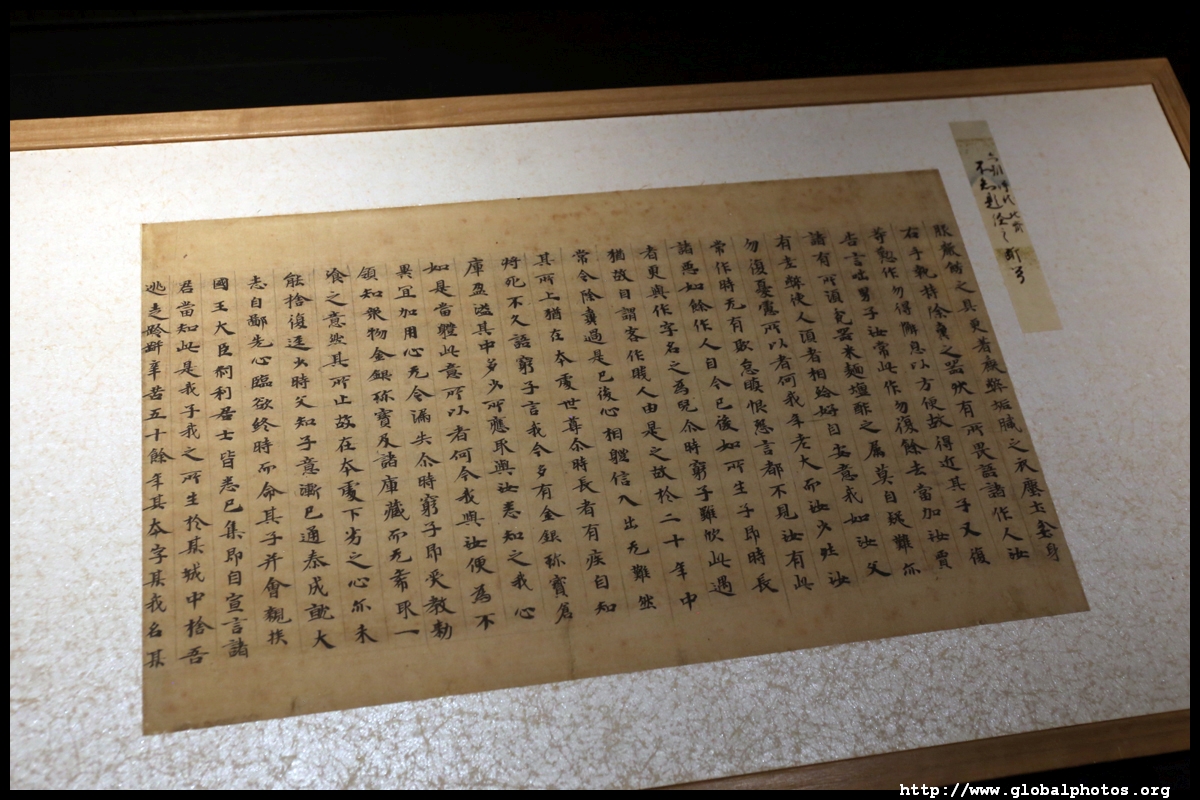 服嚴餝之具更著麁弊垢膩之衣塵土坌身
右手執持除糞之器狀有所畏語諸作人汝
等懃作勿得懈息以方便故得近其子又復
告言咄男子汝常此作勿復餘去當加汝賈
諸有所須瓫器米麵塩酢之属莫自疑難尒
有老弊使人須者相給好自安意我如汝父
勿復憂慮所以者何我年老大而汝少壯汝
常作時无有欺怠瞋恨怨言都不見汝有此
諸惡如餘作人自今已後如所生子即時長
者更與作字名之為兒尒時窮子雖欣此遇
猶故自謂客作賤人由是之故於二十年中
常令除糞過是已後心相軆信入出无難然
其所止猶在本處世尊尒時長者有疾自知
将死不久語窮子言我今多有金銀珎寶倉
庫盈溢其中多少所應取與汝悉知之我心
如是當軆此意所以者何今我與汝便為不
異宜加用心无令漏失尒時窮子即受教勅
領知衆物金銀珎寶及諸庫藏而无悕取一
飡之意然其所止故在本處下劣之心亦未
能捨復逕少時父知子意漸已通泰成就大
志自鄙先心臨欲終時而命其子并會親族
國王大臣刹利居士皆悉已集即自宣言諸
君當知此是我子我之所生於某城中捨吾
逃走跉跰辛苦五十餘年其本字某我名某
http://www.globalphotos.org